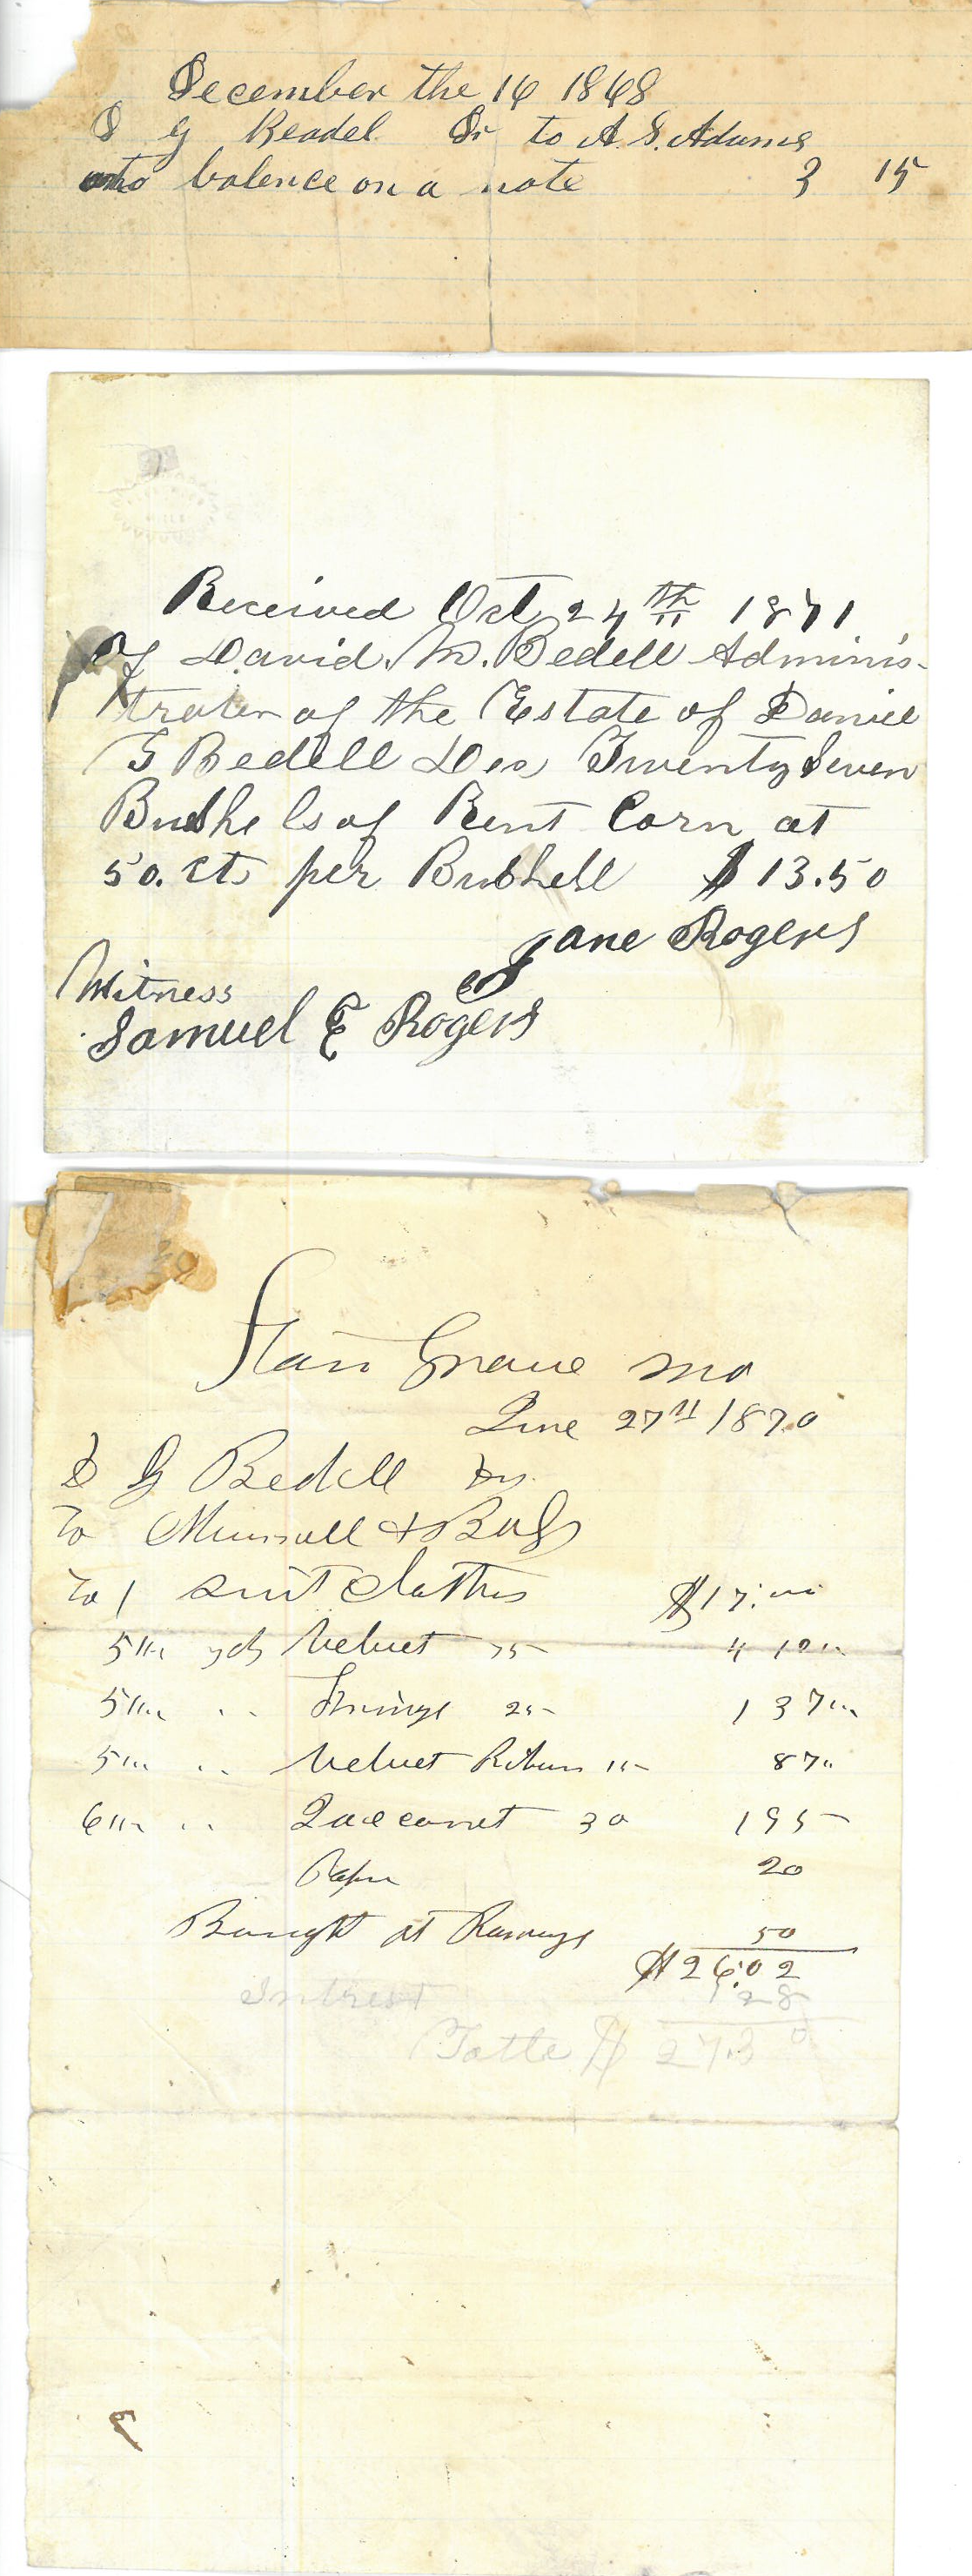 December the 16 1868
D G Beadel Dr to A. S. Adams
to balence on a note 3 15
Received Oct 24th 1871
of David. M. Bedell Adminis-
trator of the Estate of Daniel
G Bedell Des Twenty Seven
Bushels of Rent Corn at
50. cts per Bushell $13.50
Jane Rogers
Witness
Samuel E Rogers
Grove Mo
June 27th 1870
D G Bedell Dr.
To Munsell &
To 1 suit Clothes $17.00
yds Velvet 75
25 1 37
Velvet Ribbon 15 87
30 1 95
Paper 20
Bought at 50
$26.02
Intrest 1 28
Totle $ 27.30